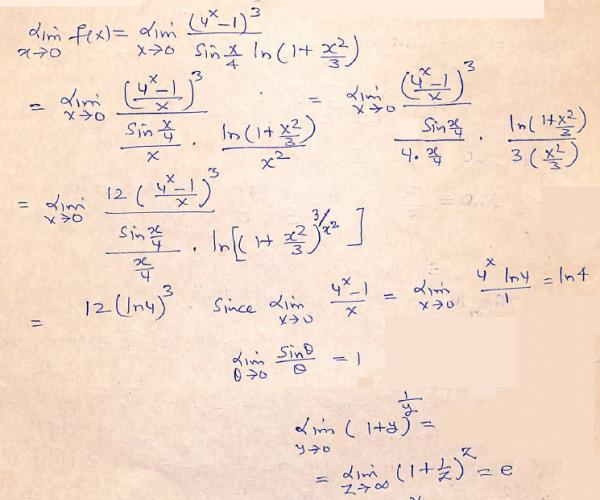 lim x→0 f(x) = lim x→0 (4^x-1)^3 / sin x/4 ln(1+ x^2/3)
= lim x→0 ((4^x-1)/x)^3 / (sin x/4)/x · ln(1+x^2/3)/x^2 = lim x→0 ((4^x-1)/x)^3 / (sin x/4)/(4·x/4) · ln(1+x^2/3)/3(x^2/3)
= lim x→0 12((4^x-1)/x)^3 / (sin x/4)/(x/4) · ln[(1+x^2/3)^3/x^2]
= 12(ln4)^3 Since lim x→0 (4^x-1)/x = lim x→0 4^x ln4/1 = ln4
lim θ→0 sinθ/θ = 1
lim y→0 (1+y)^1/y =
= lim z→∞ (1+1/z)^z = e